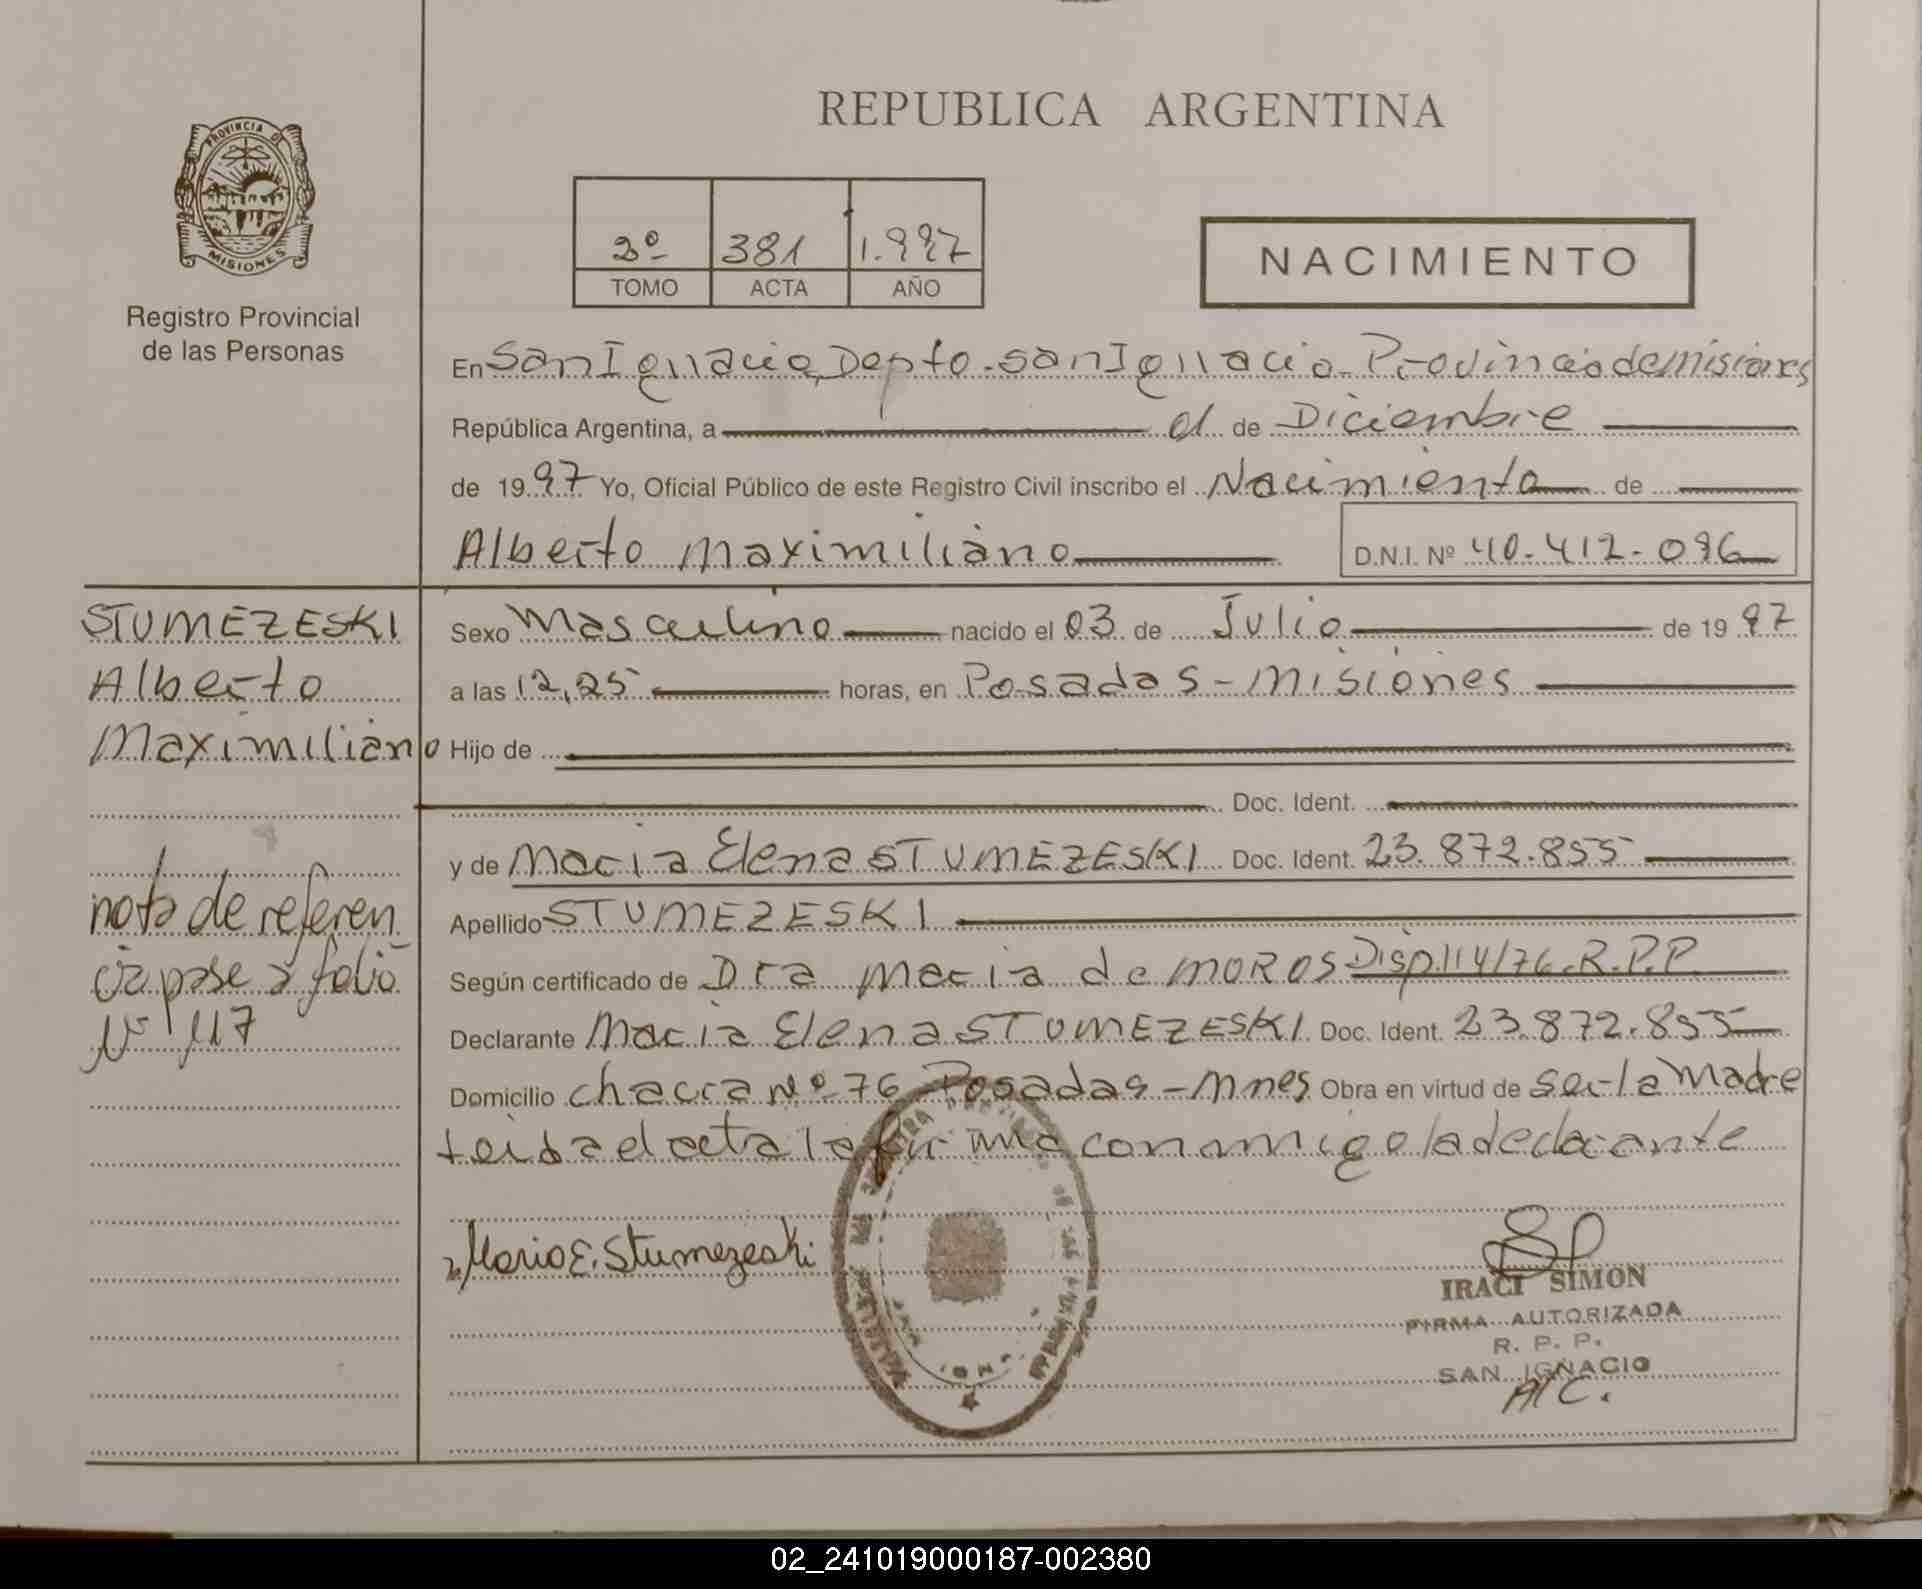 REPUBLICA ARGENTINA
PROVINCIA DE
MISIONES
Registro Provincial
de las Personas
2º 381 1.997
TOMO ACTA AÑO
NACIMIENTO
En San Ignacio Depto. San Ignacio. Provincia de Misiones
República Argentina, a de Diciembre
de 1997 Yo, Oficial Público de este Registro Civil inscribo el Nacimiento de
Alberto Maximiliano D.N.I. Nº 40.412.096
STUMEZESKI
Alberto
Maximiliano
Sexo Masculino nacido el 03 de Julio de 1997
a las 12,25 horas, en Posadas - Misiones
Hijo de
Doc. Ident.
y de Maria Elena STUMEZESKI Doc. Ident. 23.872.855
Apellido STUMEZESKI
Según certificado de Dra Maria de MOROS Disp. 114/76. R.P.P
Declarante Maria Elena STUMEZESKI Doc. Ident. 23.872.855
Domicilio chacra Nº 76 Posadas - Mnes Obra en virtud de ser la Madre
leida el acta la firma conmigo la declarante
nota de referen
cia pase a folio
Nº 117
Maria E. Stumezeski
IRACI SIMON
FIRMA AUTORIZADA
R. P. P.
SAN IGNACIO
A/C.
02_241019000187-002380